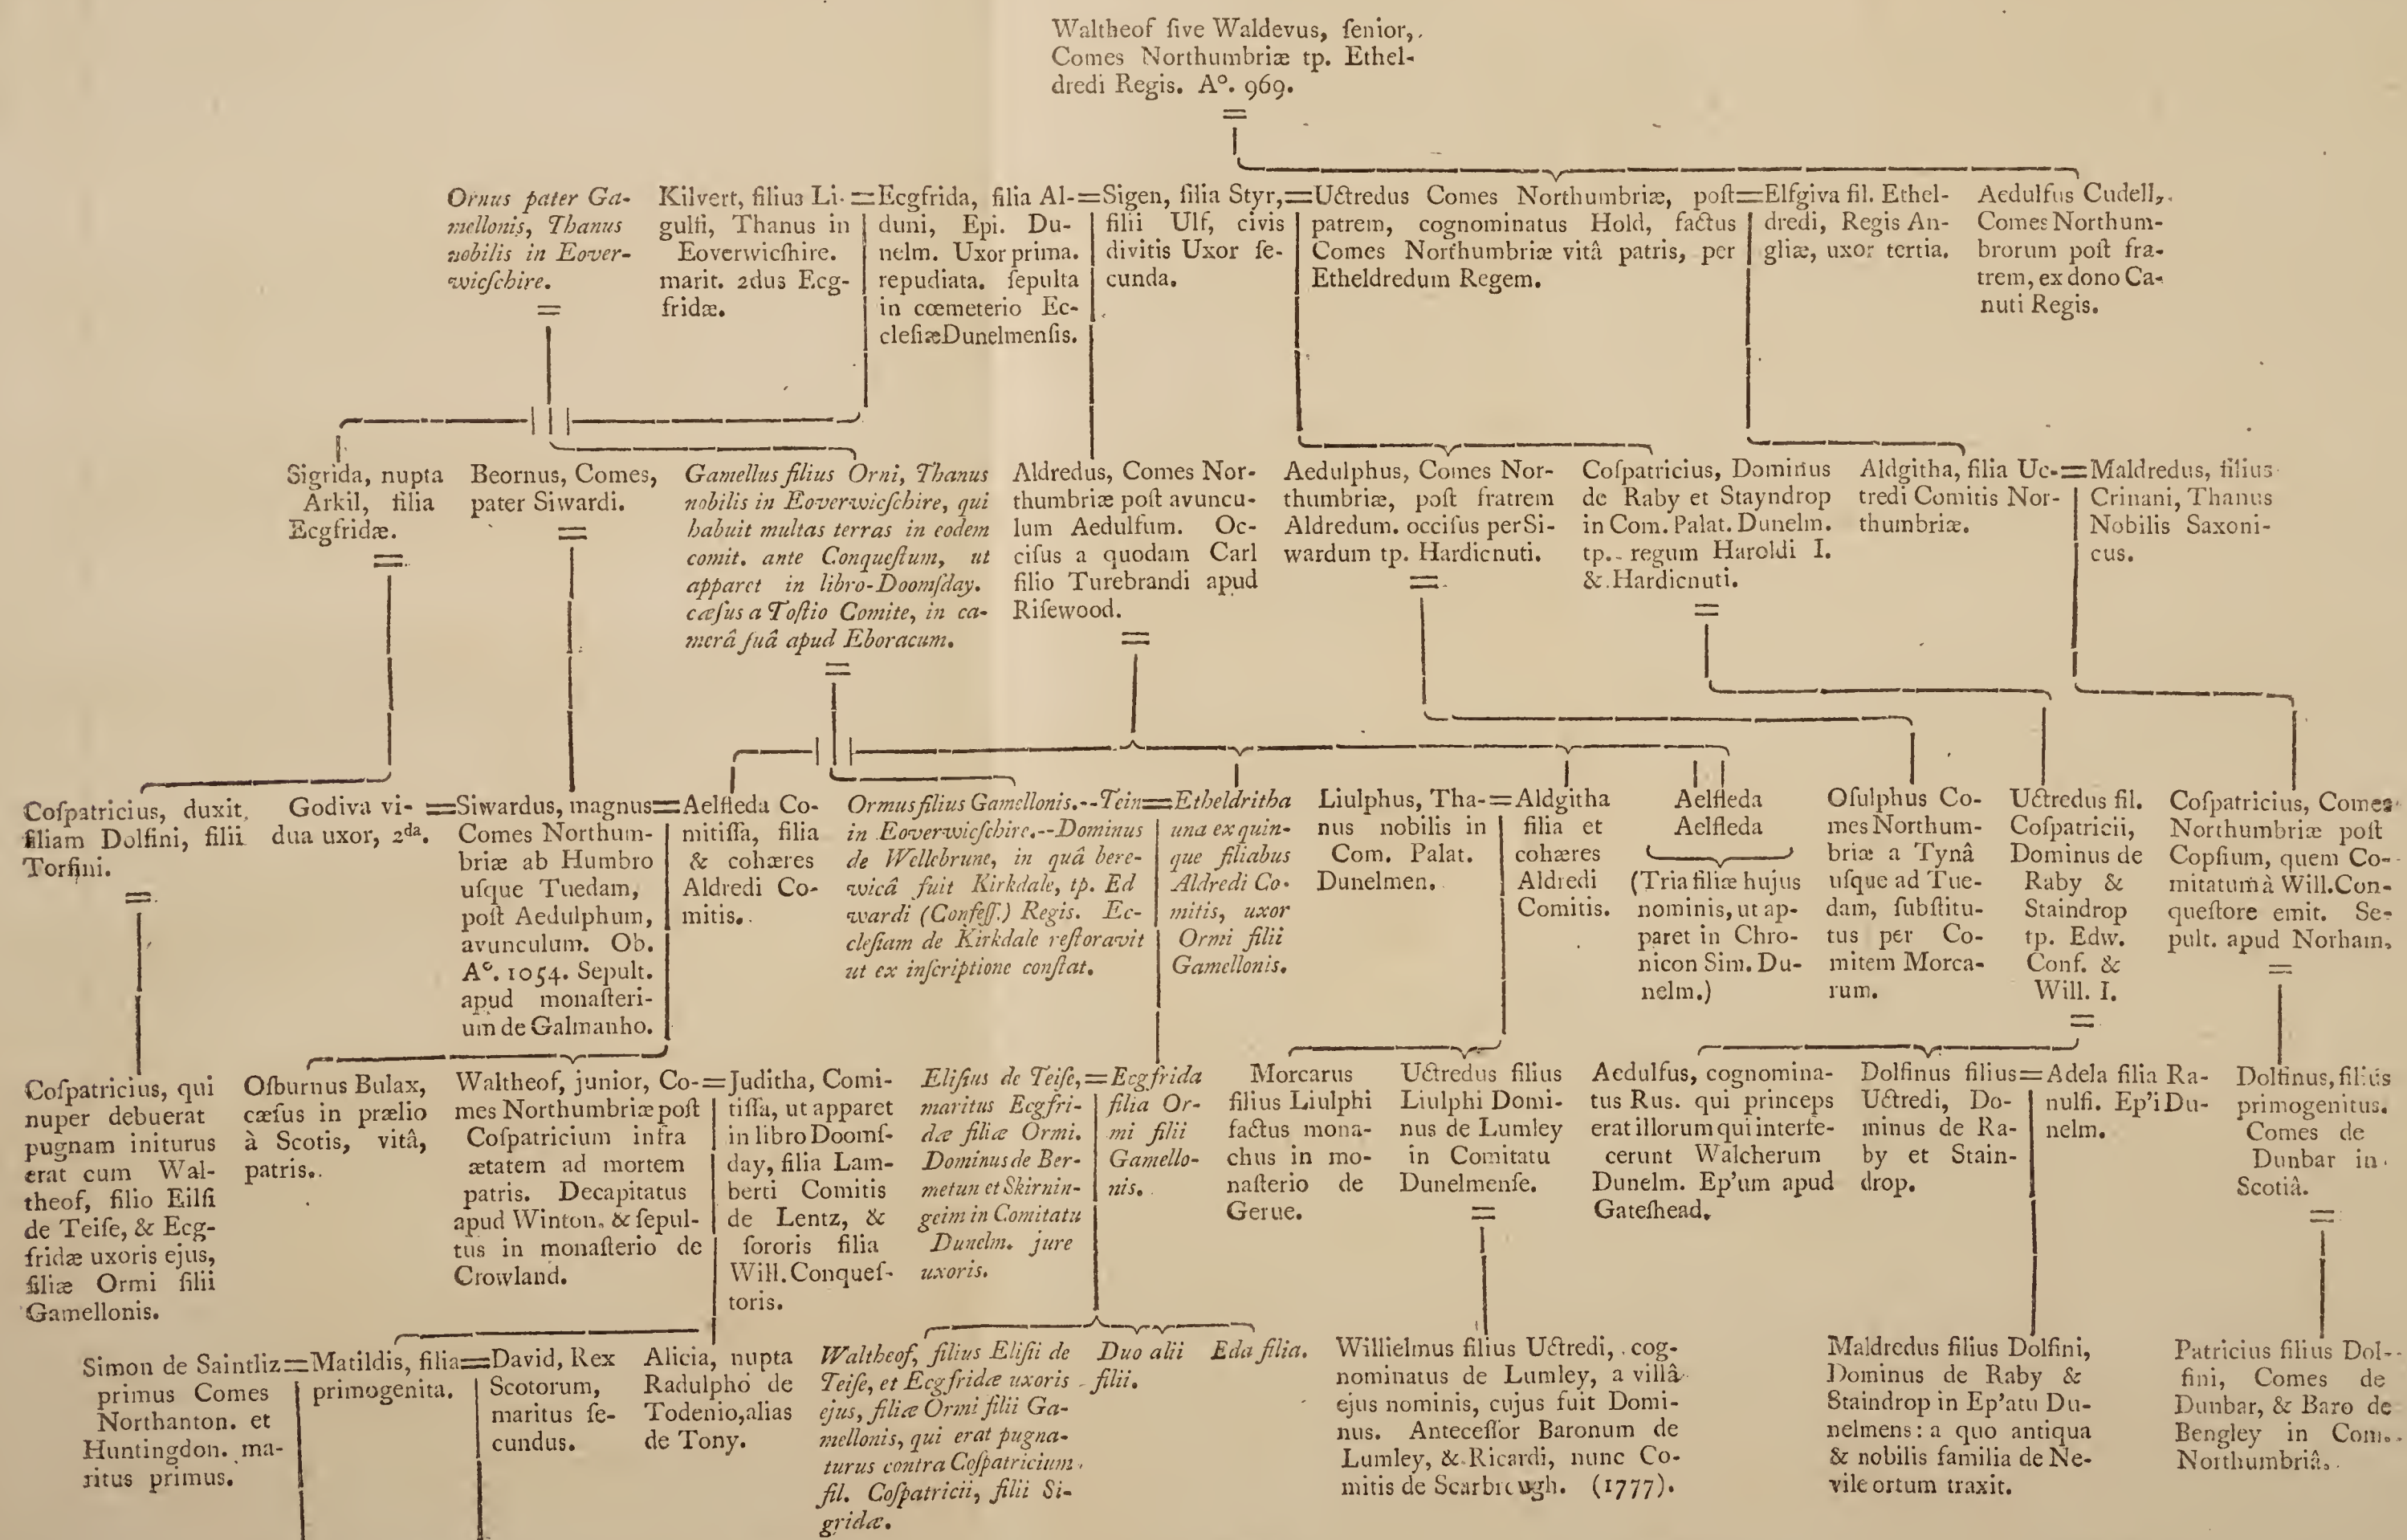 Waltheof ſive Waldevus, ſenior,
Comes Northumbriæ tp. Ethel-
dredi Regis. Aº. 969.
Ornus pater Ga-
mellonis, Thanus
nobilis in Eover-
wicſchire.
Kilvert, filius Li-
gulfi, Thanus in
Eoverwicſhire.
marit. 2dus Ecg-
fridæ.
Ecgfrida, filia Al-
duni, Epi. Du-
nelm. Uxor prima.
repudiata. ſepulta
in cœmeterio Ec-
cleſiæ Dunelmenſis.
Sigen, filia Styr,
filii Ulf, civis
divitis Uxor ſe-
cunda.
Uctredus Comes Northumbriæ, poſt
patrem, cognominatus Hold, factus
Comes Northumbriæ vitâ patris, per
Etheldredum Regem.
Elfgiva fil. Ethel-
dredi, Regis An-
gliæ, uxor tertia.
Aedulfus Cudell,
Comes Northum-
brorum poſt fra-
trem, ex dono Ca-
nuti Regis.
Sigrida, nupta
Arkil, filia
Ecgfridæ.
Beornus, Comes,
pater Siwardi.
Gamellus filius Orni, Thanus
nobilis in Eoverwicſchire, qui
habuit multas terras in eodem
comit. ante Conqueſtum, ut
apparet in libro-Doomſday.
cæſus a Toſtio Comite, in ca-
merâ ſuâ apud Eboracum.
Aldredus, Comes Nor-
thumbriæ poſt avuncu-
lum Aedulfum. Oc-
ciſus a quodam Carl
filio Turebrandi apud
Riſewood.
Aedulphus, Comes Nor-
thumbriæ, poſt fratrem
Aldredum. occiſus per Si-
wardum tp. Hardicnuti.
Coſpatricius, Dominus
de Raby et Stayndrop
in Com. Palat. Dunelm.
tp. regum Haroldi I.
& Hardicnuti.
Aldgitha, filia Uc-
tredi Comitis Nor-
thumbriæ.
Maldredus, filius
Crinani, Thanus
Nobilis Saxoni-
cus.
Coſpatricius, duxit
filiam Dolfini, filii
Torfini.
Godiva vi-
dua uxor, 2da.
Siwardus, magnus
Comes Northum-
briæ ab Humbro
uſque Tuedam,
poſt Aedulphum,
avunculum. Ob.
Aº. 1054. Sepult.
apud monaſteri-
um de Galmanho.
Aelfleda Co-
mitiſſa, filia
& cohæres
Aldredi Co-
mitis.
Ormus filius Gamellonis.--Tein
in Eoverwicſchire.--Dominus
de Wellebrune, in quâ bere-
wicâ fuit Kirkdale, tp. Ed
wardi (Confeſſ.) Regis. Ec-
cleſiam de Kirkdale reſtoravit
ut ex inſcriptione conſtat.
Etheldritha
una ex quin-
que filiabus
Aldredi Co-
mitis, uxor
Ormi filii
Gamellonis.
Liulphus, Tha-
nus nobilis in
Com. Palat.
Dunelmen.
Aldgitha
filia et
cohæres
Aldredi
Comitis.
Aelfleda
Aelfleda
(Tria filiæ hujus
nominis, ut ap-
paret in Chro-
nicon Sim. Du-
nelm.)
Oſulphus Co-
mes Northum-
briæ a Tynâ
uſque ad Tue-
dam, ſubſtitu-
tus per Co-
mitem Morca-
rum.
Uctredus fil.
Coſpatricii,
Dominus de
Raby &
Staindrop
tp. Edw.
Conf. &
Will. I.
Coſpatricius, Comes
Northumbriæ poſt
Copſium, quem Co-
mitatum à Will. Con-
queſtore emit. Se-
pult. apud Norham.
Coſpatricius, qui
nuper debuerat
pugnam initurus
erat cum Wal-
theof, filio Eilſi
de Teiſe, & Ecg-
fridæ uxoris ejus,
filiæ Ormi filii
Gamellonis.
Oſburnus Bulax,
cæſus in prælio
à Scotis, vitâ,
patris.
Waltheof, junior, Co-
mes Northumbriæ poſt
Coſpatricium infra
ætatem ad mortem
patris. Decapitatus
apud Winton. & ſepul-
tus in monaſterio de
Crowland.
Juditha, Comi-
tiſſa, ut apparet
in libro Doomſ-
day, filia Lam-
berti Comitis
de Lentz, &
ſororis filia
Will. Conqueſ-
toris.
Eliſius de Teiſe,
maritus Ecgfri-
dæ filiæ Ormi.
Dominus de Ber-
metun et Skirnin-
geim in Comitatu
Dunelm. jure
uxoris.
Ecgfrida
filia Or-
mi filii
Gamello-
nis.
Morcarus
filius Liulphi
factus mona-
chus in mo-
naſterio de
Gerue.
Uctredus filius
Liulphi Domi-
nus de Lumley
in Comitatu
Dunelmenſe.
Aedulfus, cognomina-
tus Rus. qui princeps
erat illorum qui interfe-
cerunt Walcherum
Dunelm. Ep'um apud
Gateſhead.
Dolfinus filius
Uctredi, Do-
minus de Ra-
by et Stain-
drop.
Adela filia Ra-
nulfi. Ep'i Du-
nelm.
Dolfinus, filius
primogenitus.
Comes de
Dunbar in
Scotiâ.
Simon de Saintliz
primus Comes
Northanton. et
Huntingdon. ma-
ritus primus.
Matildis, filia
primogenita.
David, Rex
Scotorum,
maritus ſe-
cundus.
Alicia, nupta
Radulpho de
Todenio, alias
de Tony.
Waltheof, filius Eliſii de
Teiſe, et Ecgfridæ uxoris
ejus, filiæ Ormi filii Ga-
mellonis, qui erat pugna-
turus contra Coſpatricium
fil. Coſpatricii, filii Si-
gridæ.
Duo alii
filii.
Eda filia.
Willielmus filius Uctredi, cog-
nominatus de Lumley, a villâ
ejus nominis, cujus fuit Domi-
nus. Anteceſſor Baronum de
Lumley, & Ricardi, nunc Co-
mitis de Scarbrough. (1777).
Maldredus filius Dolfini,
Dominus de Raby &
Staindrop in Ep'atu Du-
nelmens: a quo antiqua
& nobilis familia de Ne-
vile ortum traxit.
Patricius filius Dol-
fini, Comes de
Dunbar, & Baro de
Bengley in Com.
Northumbriâ.